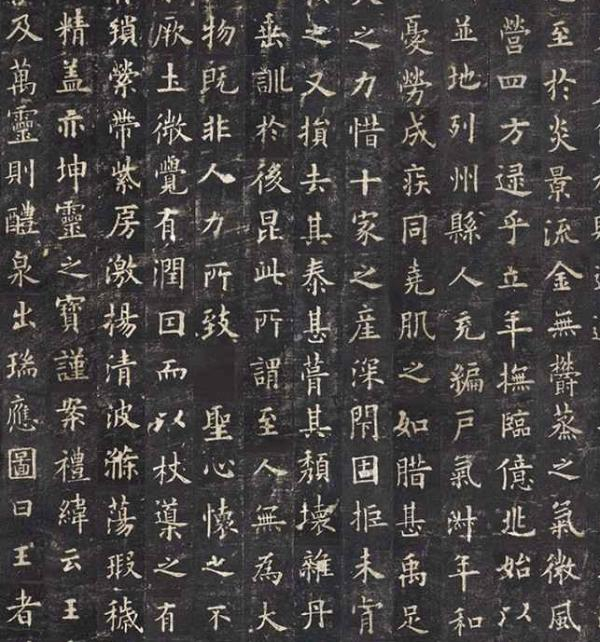 之至於炎景流金無鬱蒸之氣微風
營四方逮乎立年撫臨億兆始以
並地列州縣人充編戶氣淑年和
憂勞成疾同堯肌之如腊甚禹足
之力惜十家之產深閉固拒未肯
之又損去其泰甚葺其頹壞雜丹
垂訓於後昆此所謂至人無為大
物既非人力所致 聖心懷之不
厥土微覺有潤因而以杖導之有
鎖縈帶紫房激揚清波滌蕩瑕穢
精蓋亦坤靈之寶謹案禮緯云王
及萬靈則醴泉出瑞應圖曰王者